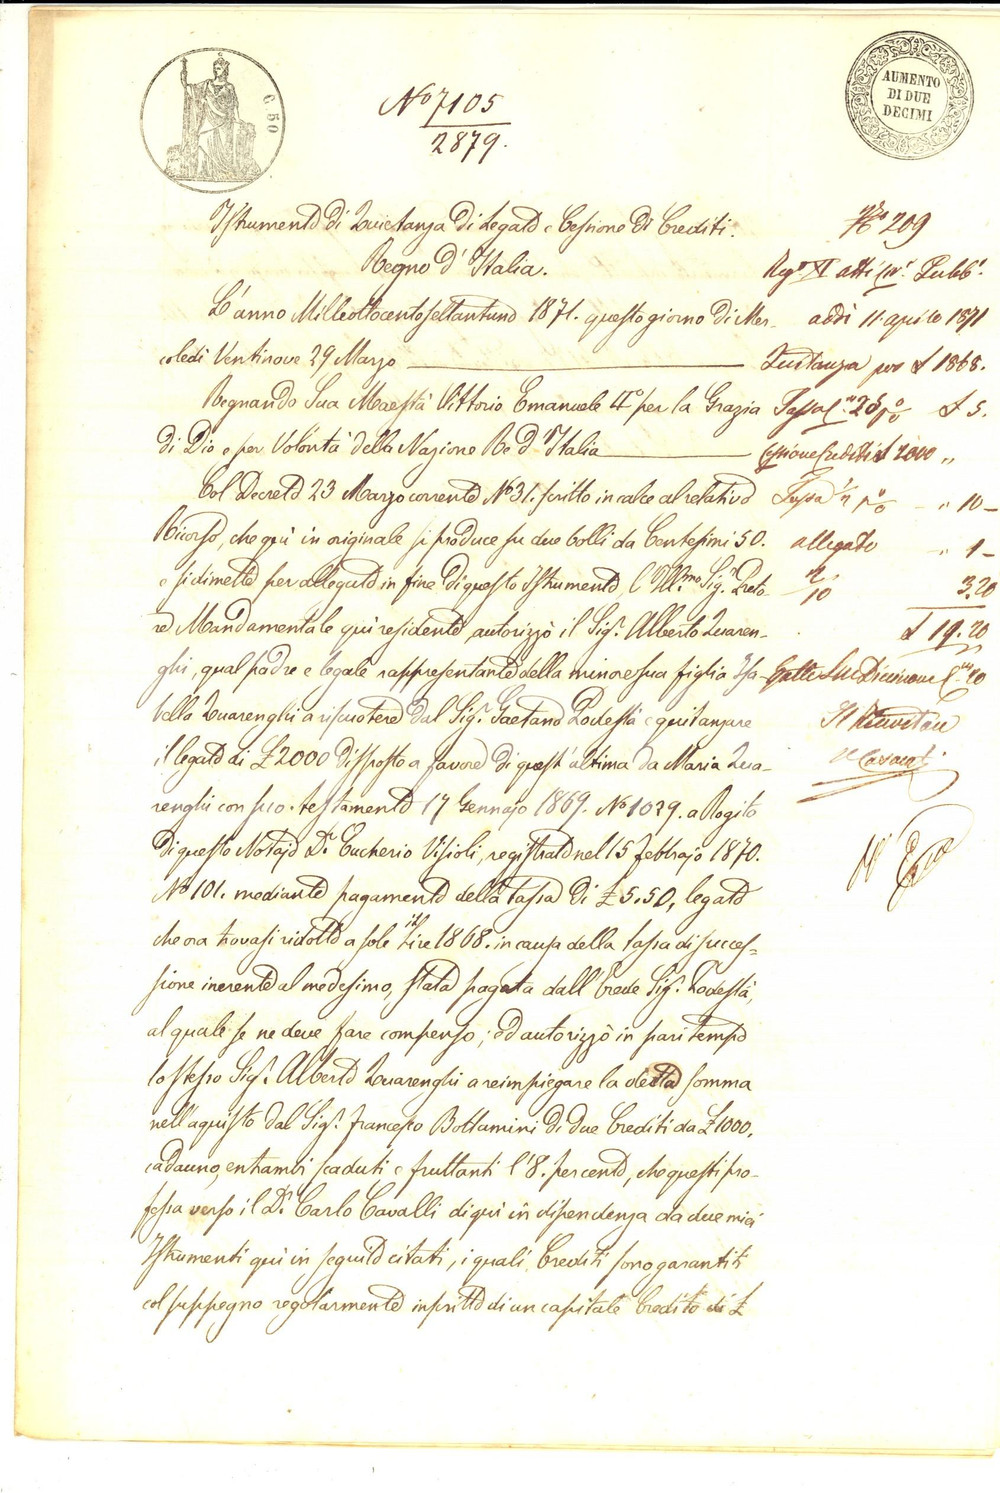 C. 50
AUMENTO
DI DUE
DECIMI
No 7105
2879.
Istrumento di Quietanza di Legato e Cessione di Crediti.
Regno d'Italia.
L'anno Milleottocentosettantuno 1871. questo giorno di Mer-
coledì Ventinove 29 Marzo
Regnando Sua Maestà Vittorio Emanuele II° per la Grazia
di Dio e per Volontà della Nazione Re d'Italia
Col Decreto 23 Marzo corrente No 31. scritto in calce al relativo
Ricorso, che quì in originale si produce su due bolli da Centesimi 50.
e si dimette per allegato in fine di questo Istrumento, l'Ill.mo Sig.r Preto-
re Mandamentale quì residente, autorizzò il Sig.r Alberto Quaren-
ghi, qual padre e legale rappresentante della minore sua figlia Isa-
bella Quarenghi a riscuotere dal Sig.r Gaetano Podestà e quitanzare
il legato di £ 2000 disposto a favore di quest'ultima da Maria Qua-
renghi con suo testamento 17 Gennajo 1869. No 1029. a Rogito
di questo Notajo Dr. Eucherio Visioli, registrato nel 15 febbrajo 1870.
No 101. mediante pagamento della tassa di £ 5.50, legato
che ora trovasi ridotto a sole it.e Lire 1868. in causa della tassa di succes-
sione inerente al medesimo, stata pagata dall'Erede Sig.r Podestà,
al quale se ne deve fare compenso; ed autorizzò in pari tempo
lo stesso Sig.r Alberto Quarenghi a reimpiegare la detta somma
nell'aquisto dal Sig.r Francesco Bottamini di due Crediti da £ 1000.
cadauno, entrambi scaduti e fruttanti l'8. per cento, che questi pro-
fessa verso il Dr. Carlo Cavalli di quì in dipendenza da due miei
Istrumenti quì in seguito citati, i quali Crediti sono garantiti
col suppegno regolarmente inscritto di un capitale Credito di £
No 209
Reg.o XI atti Civ.i Pubb.i
addì 11 aprile 1871
Quitanza per £ 1868.
Tassa C.mi 25 % £ 5.
Cessione Crediti £ 2000 „
Tassa % „ 10 –
allegato „ 1 –
2/10 3.20
£ 19.20
Il Ricevitore